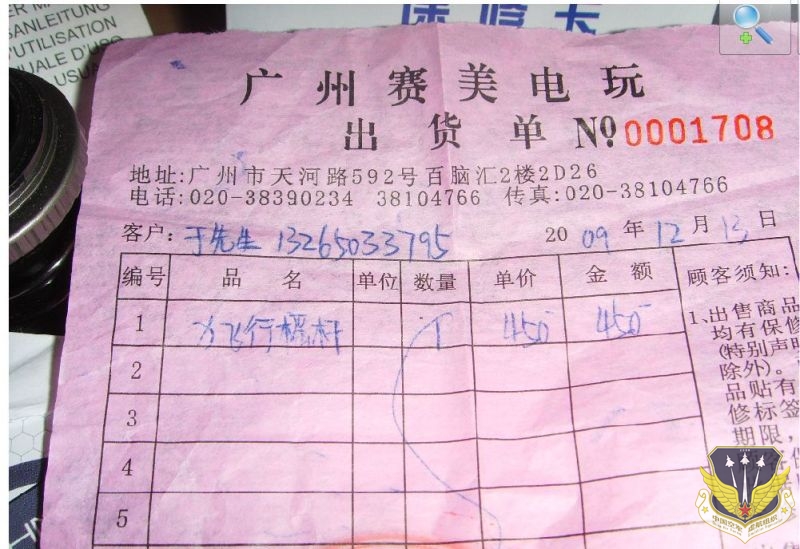 ER M
SANLEITUNG
D'UTILISATION
UALE D'USO
USUA
保修卡
广州赛美电玩
出货单 №0001708
地址:广州市天河路592号百脑汇2楼2D26
电话:020-38390234 38104766 传真:020-38104766
客户: 于先生 13265033795 2009年12月13日
编号 品名 单位 数量 单价 金额 顾客须知:
1 飞行摇杆 1 450 450
2
3
4
5
1、出售商品
均有保修
(特别声明
除外)。
品贴有
修标签
期限，
中国空军